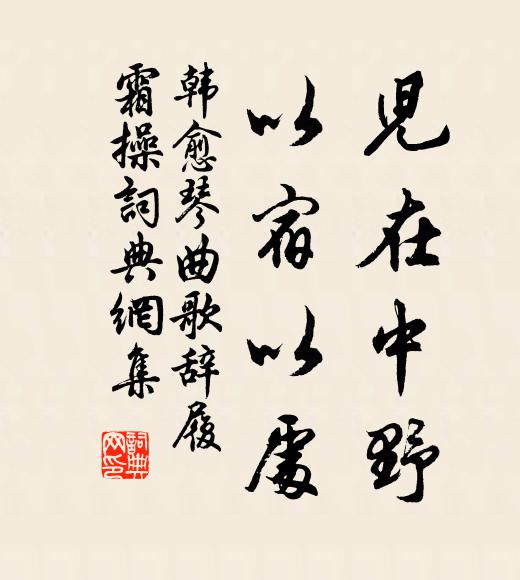 児在中野
以宿以處
韩愈琴曲歌辞履
霜操詞典網集
詞典
网印